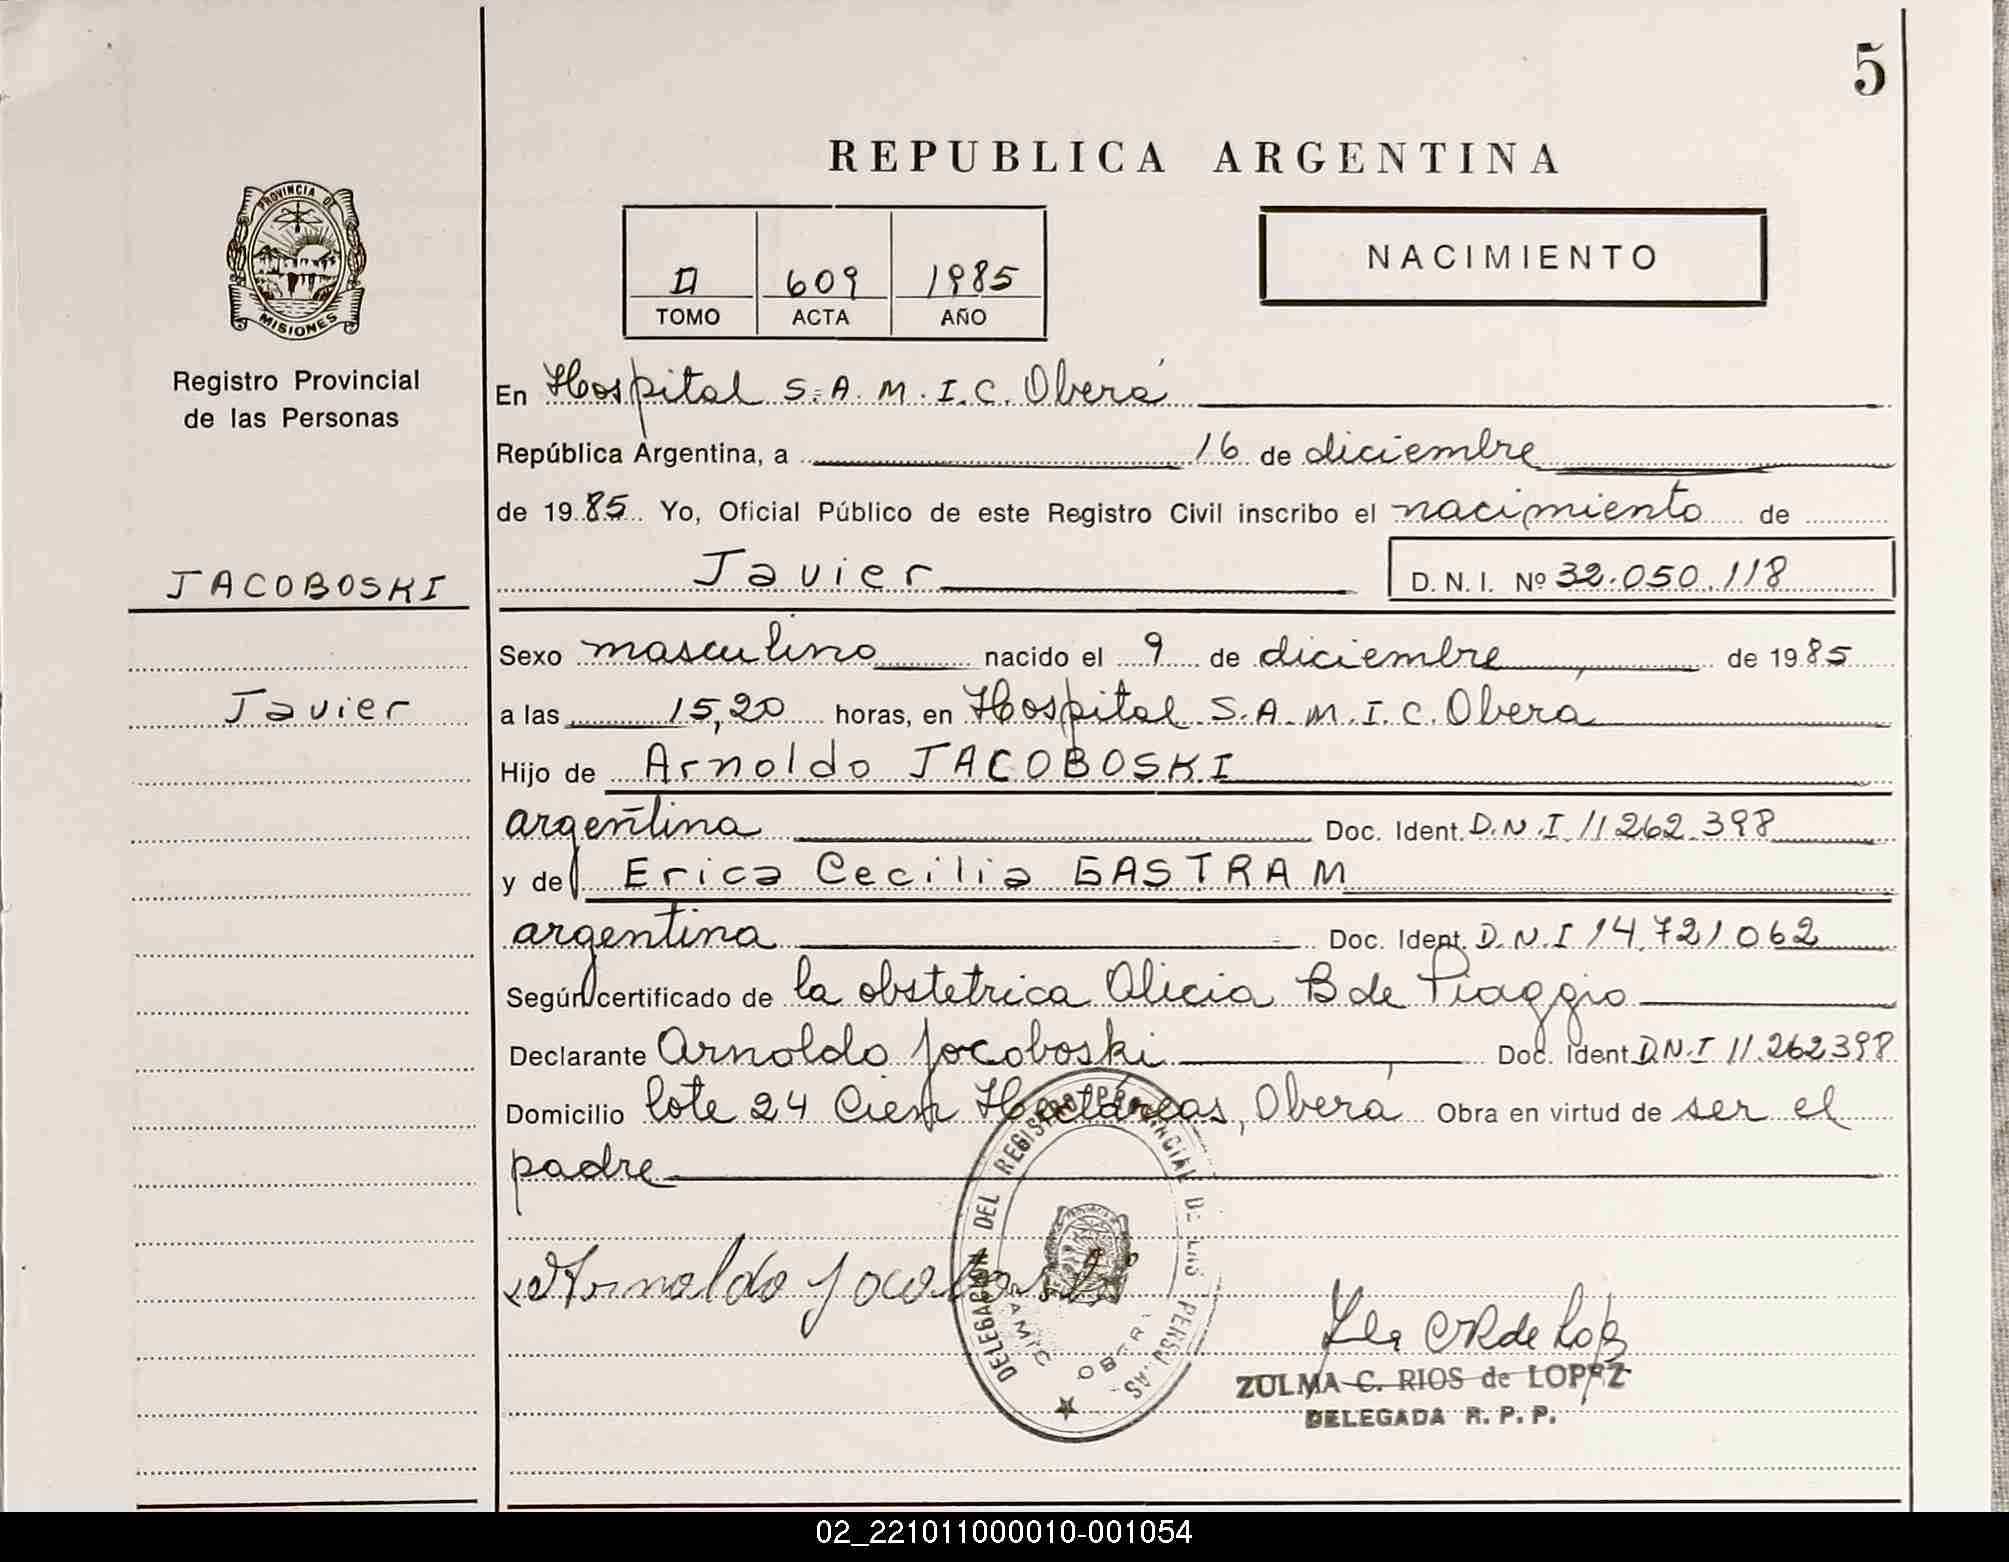 5
REPUBLICA ARGENTINA
PROVINCIA DE
MISIONES
Registro Provincial
de las Personas
II 609 1985
TOMO ACTA AÑO
NACIMIENTO
En Hospital S.A.M.I.C. Oberá
República Argentina, a 16 de diciembre
de 1985 Yo, Oficial Público de este Registro Civil inscribo el nacimiento de
JACOBOSKI
Javier D. N. I. Nº 32.050.118
Sexo masculino nacido el 9 de diciembre de 1985
Javier
a las 15,20 horas, en Hospital S.A.M.I.C. Oberá
Hijo de Arnoldo JACOBOSKI
argentina Doc. Ident. D.N.I 11262398
y de Erica Cecilia GASTRAM
argentina Doc. Ident. D.N.I 14.721062
Según certificado de la obstetrica Alicia B de Piaggio
Declarante Arnoldo Jacoboski Doc. Ident D.N.I 11.262398
Domicilio lote 24 Cien Hectáreas, Oberá Obra en virtud de ser el
padre
DELEGACION DEL REGISTRO PROVINCIAL DE LAS PERSONAS
SAMIC OBERA
Arnoldo Jacoboski
ZULMA C. RIOS de LOPEZ
DELEGADA R. P. P.
02_221011000010-001054